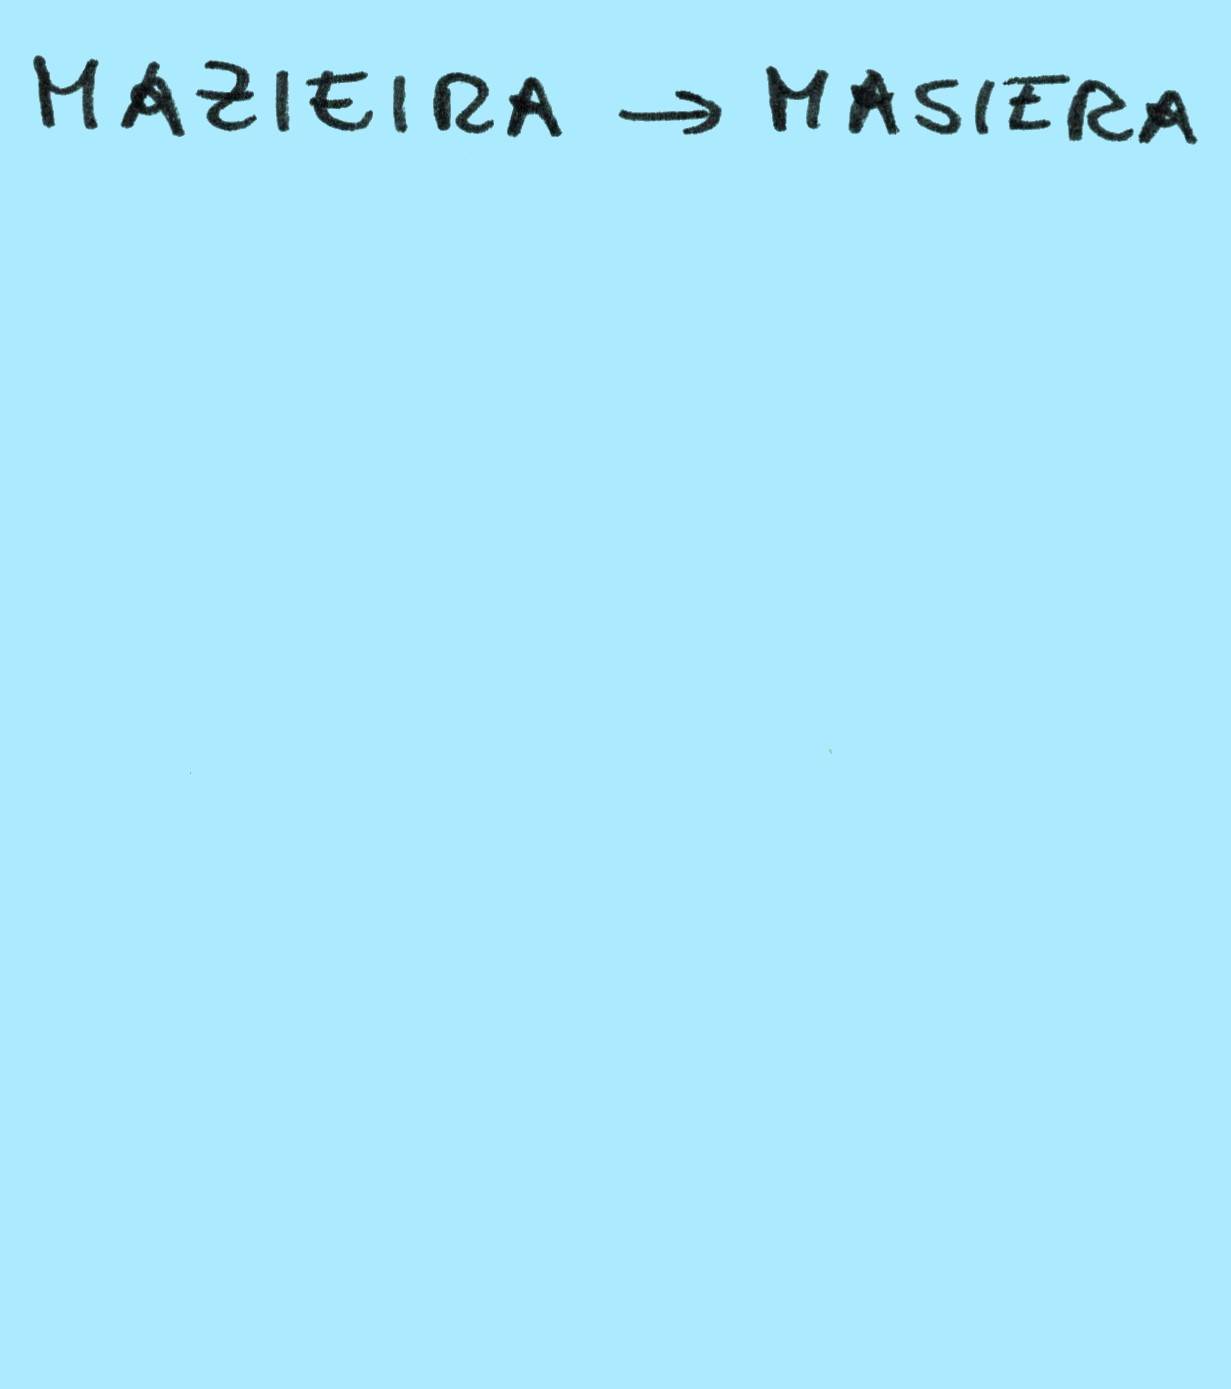 MAZIEIRA → MASIERA